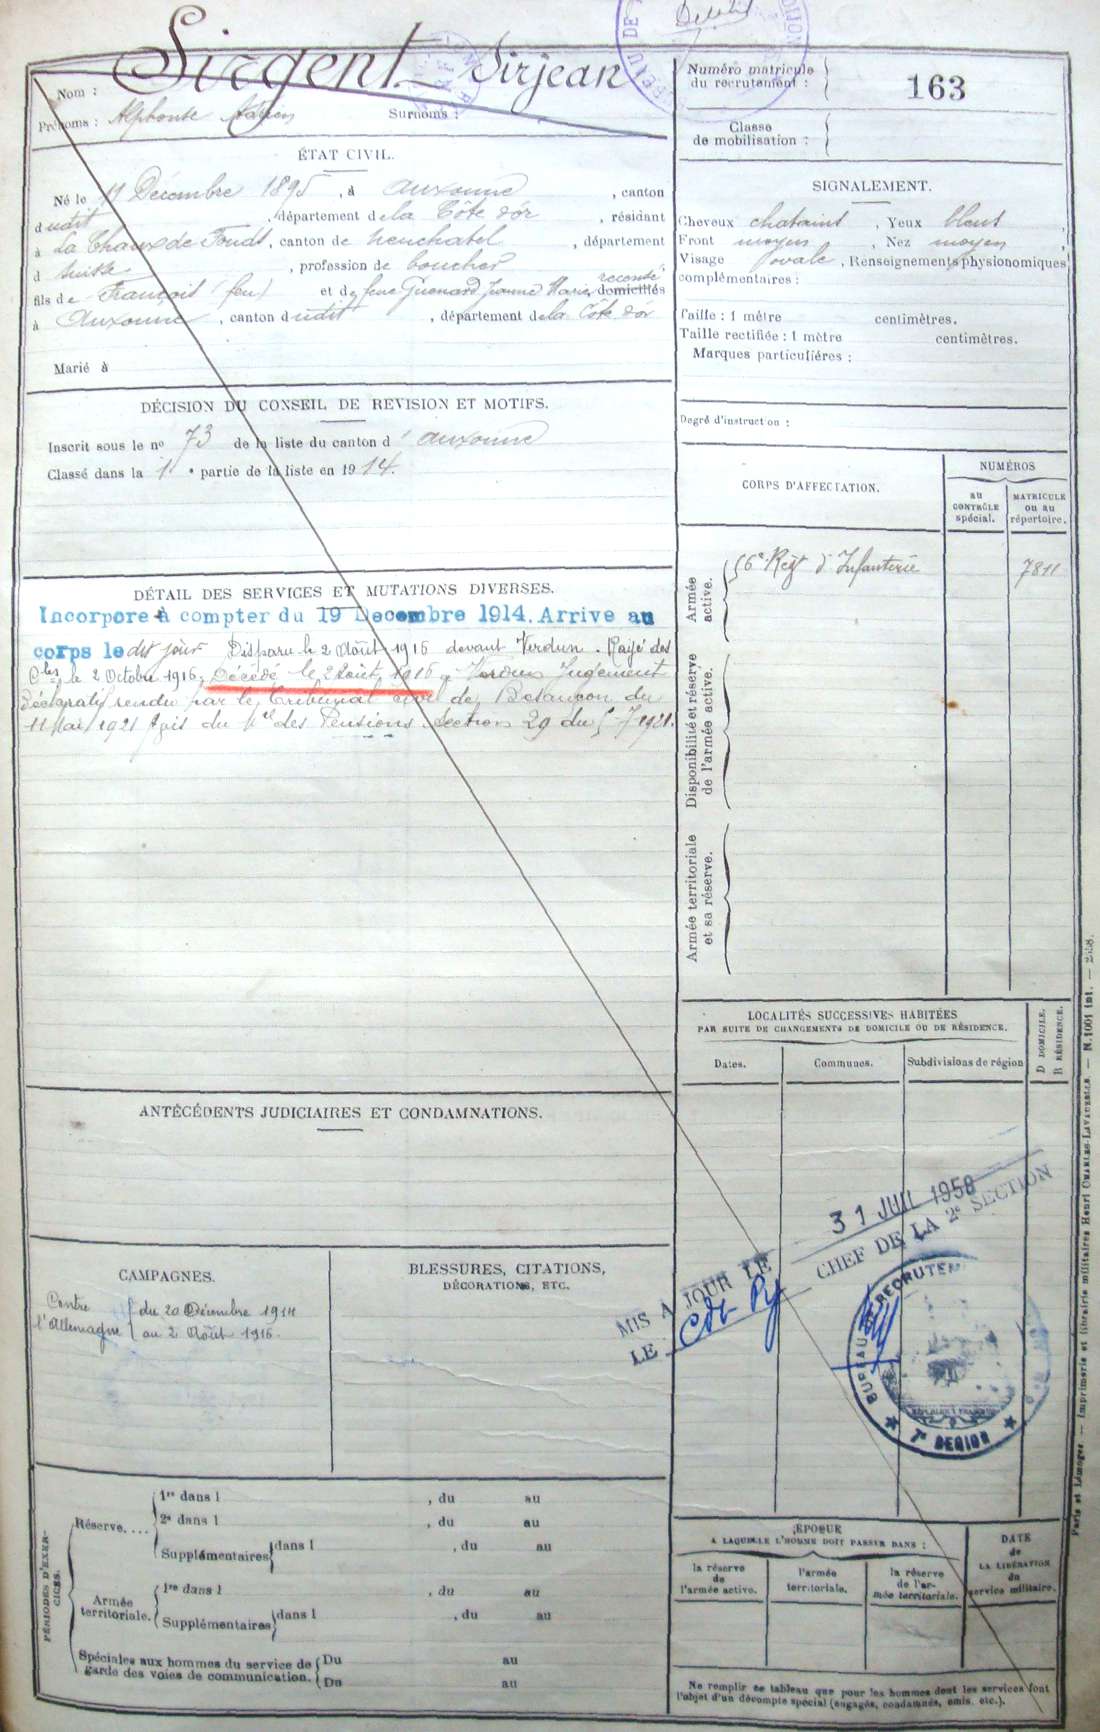 Sirgent Sirjean
Nom :
Prénoms : Alphonse Adrien Surnoms :
Numéro matricule
du recrutement : 163
Classe
de mobilisation :
ÉTAT CIVIL.
Né le 11 Décembre 1895, à Auxonne, canton
dudit, département de la Côte d'or, résidant
à La Chaux de Fonds, canton de Neuchatel, département
d Suisse, profession de boucher
fils de François (feu) et de feue Guenard Jeanne Marie, domiciliés
à Auxonne, canton dudit, département de la Côte d'or
Marié à
SIGNALEMENT.
Cheveux chatains, Yeux bleus,
Front moyen, Nez moyen,
Visage ovale, Renseignements physionomiques
complémentaires :
Taille : 1 mètre centimètres.
Taille rectifiée : 1 mètre centimètres.
Marques particulières :
Degré d'instruction :
DÉCISION DU CONSEIL DE REVISION ET MOTIFS.
Inscrit sous le nº 73 de la liste du canton d'Auxonne
Classé dans la 1e partie de la liste en 1914.
CORPS D'AFFECTATION.
NUMÉROS
au
CONTRÔLE
spécial.
MATRICULE
ou au
répertoire.
Armée
active.
56e Reg d'Infanterie 7811
Disponibilité et réserve
de l'armée active.
Armée territoriale
et sa réserve.
DÉTAIL DES SERVICES ET MUTATIONS DIVERSES.
Incorporé à compter du 19 Decembre 1914. Arrive au
corps le dit jour. Disparu le 2 Août 1916 devant Verdun. Rayé des
Cles le 2 Octobre 1916. Décédé le 2 Août 1916 à Verdun Jugement
Déclaratif rendu par le Tribunal civil de Besançon du
11 Mai 1921 Avis du Mre des Pensions Section 29 du 5.7.1921.
ANTÉCÉDENTS JUDICIAIRES ET CONDAMNATIONS.
LOCALITÉS SUCCESSIVES HABITÉES
PAR SUITE DE CHANGEMENTS DE DOMICILE OU DE RÉSIDENCE.
Dates.
Communes.
Subdivisions de région
D DOMICILE.
R RÉSIDENCE.
CAMPAGNES.
Contre du 20 Décembre 1914
l'Allemagne au 2 Août 1916.
BLESSURES, CITATIONS,
DÉCORATIONS, ETC.
MIS A JOUR LE 31 JUIL 1958
LE CHEF DE LA 2e SECTION
BUREAU DE RECRUTEMENT
7e REGION
PÉRIODES D'EXERCICES.
Réserve....
1re dans l , du au
2e dans l , du au
Supplémentaires dans l , du au
Armée
territoriale.
1re dans l , du au
Supplémentaires dans l , du au
Spéciales aux hommes du service de
garde des voies de communication.
Du au
Du au
ÉPOQUE
A LAQUELLE L'HOMME DOIT PASSER DANS :
la réserve
de
l'armée active.
l'armée
territoriale.
la réserve
de l'ar-
mée territoriale.
DATE
de
LA LIBÉRATION
du
service militaire.
Ne remplir ce tableau que pour les hommes dont les services font
l'objet d'un décompte spécial (engagés, condamnés, omis, etc.).
Paris et Limoges. — Imprimerie et librairie militaires Henri CHARLES-LAVAUZELLE. — N. 1001 int.